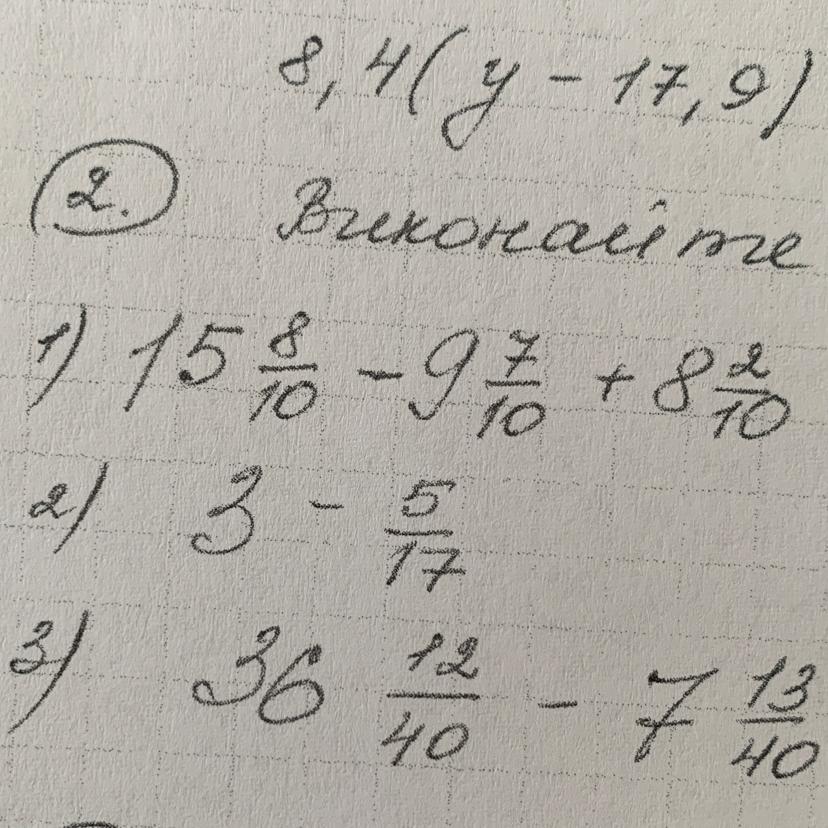 8,4(y - 17,9)
2. Виконайте
1) 15 8/10 - 9 7/10 + 8 2/10
2) 3 - 5/17
3) 36 12/40 - 7 13/40